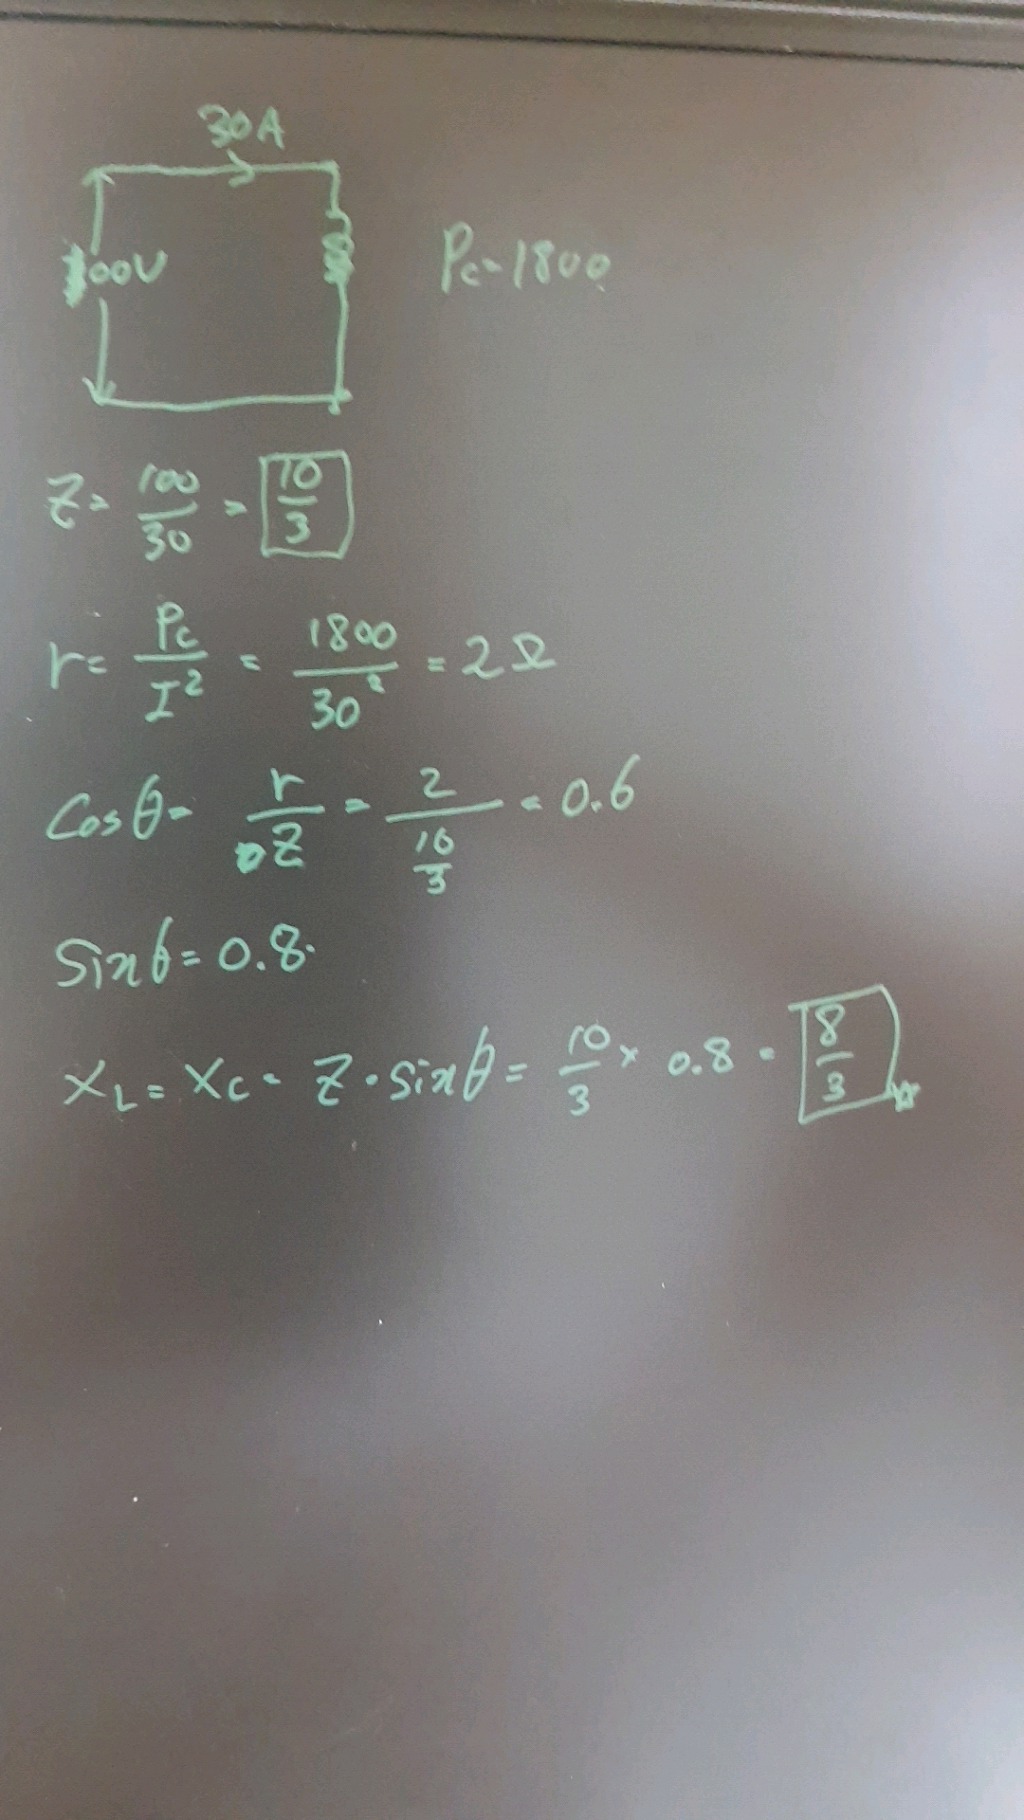 30A
100V
Pc=1800
Z = 100/30 = 10/3
r = Pc/I² = 1800/30² = 2Ω
Cosθ = r/Z = 2/(10/3) = 0.6
Sinθ = 0.8.
XL = XC = Z・sinθ = 10/3 × 0.8 = 8/3